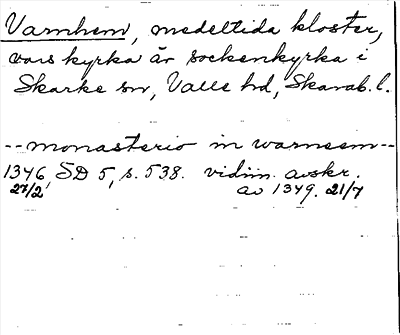 Varnhem, medeltida kloster,
vars kyrka är sockenkyrka i
Skarke sn, Valle hd, Skarab. l.
-- monasterio in warneem --
1346 SD 5, s. 538. vidim. avskr.
27/2 av 1349. 21/7